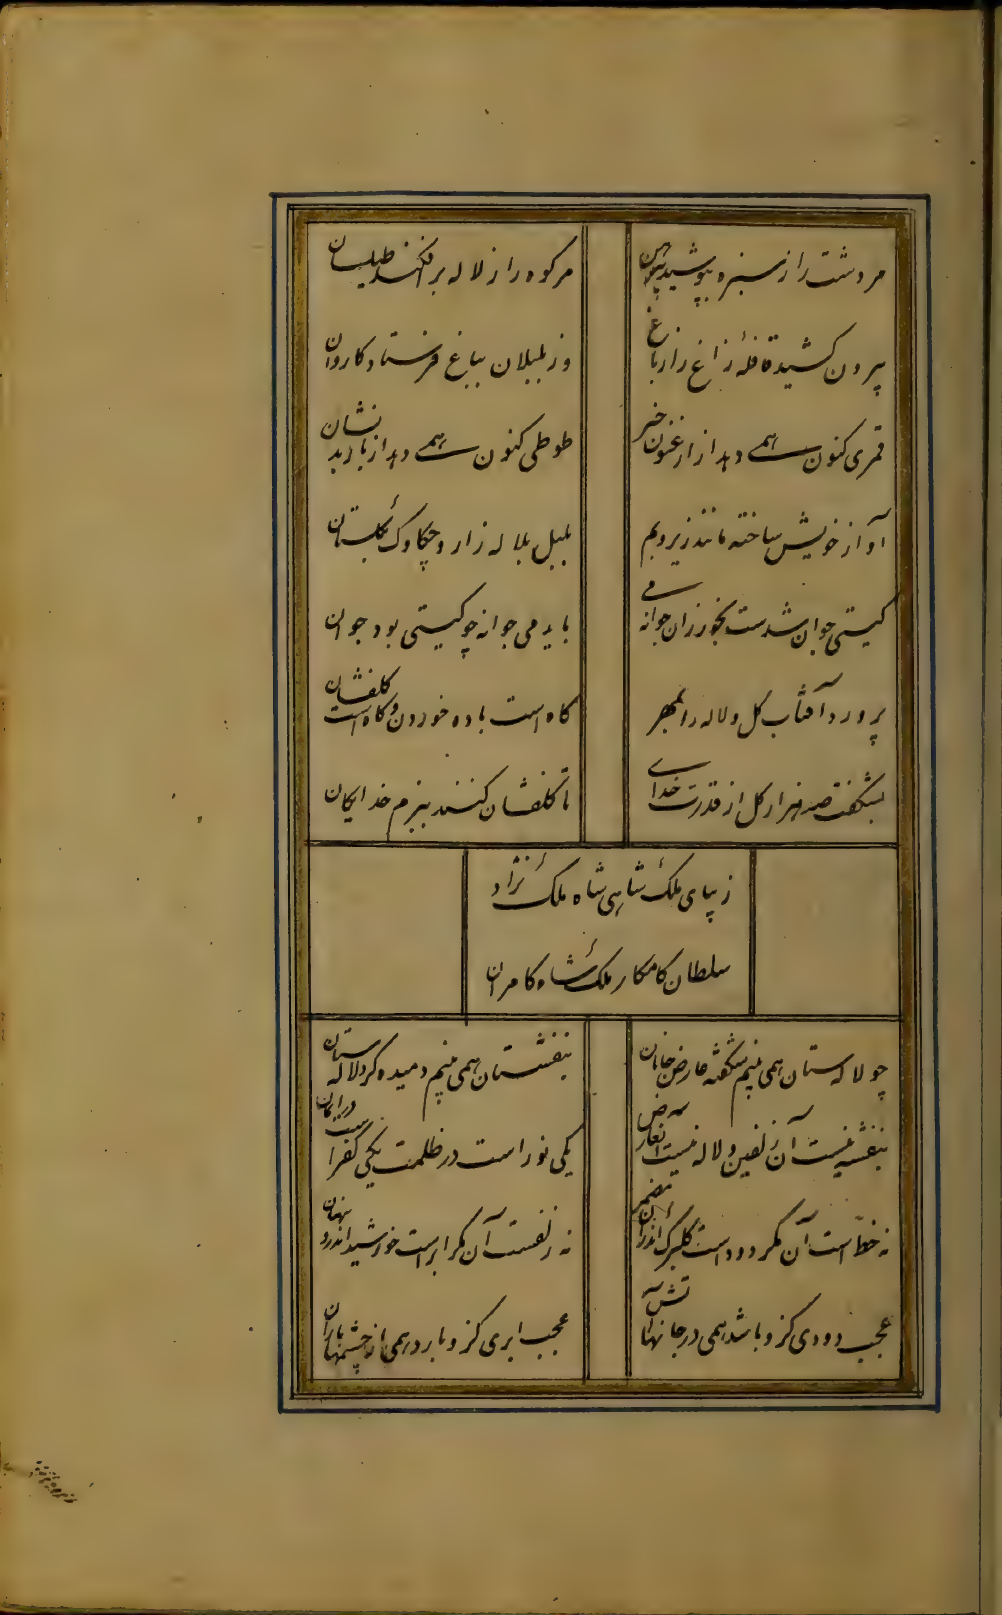 مر دشت را ز سبزه بپوشید پیرهن
مر کوه را ز لاله برافکند طیلسان
بیرون کشید قافلهٔ زاغ را ز باغ
وز بلبلان بباغ فرستاد کاروان
قمری کنون همی دهد از ارغنون خبر
طوطی کنون همی دهد از باربد نشان
آواز خویش ساخته مانند زیر و بم
بلبل بلاله زار و چکاوک بگلستان
کیتی جوان شدست بخور زان جوانه می
باید می جوانه چو کیتی بود جوان
پرورد آفتاب کل و لاله را بمهر
کاه است باده خوردن و کاه است کلفشان
بشکفت صد هزار کل از قدرت خدای
تا کلفشان کنند ببزم خدایکان
زیبای ملک شاهی شاه ملک نژاد
سلطان کامکار ملک شاه کامران
چو لاله ستان همی بینم شکفته عارض جانان
بنفشستان همی بینم دمیده کرد لاله ستان
بنفشه نیست آن زلفین و لاله نیست آن عارض
یکی نور است در ظلمت یکی کفر است در ایمان
نه خط است آن مکر دود است کلبرک اندران مضمر
نه زلفست آن مکر ابر است خورشید اندرو پنهان
عجب دودی کزو باشد همی در جانها آتش
عجب ابری کزو بارد همی از چشمها باران